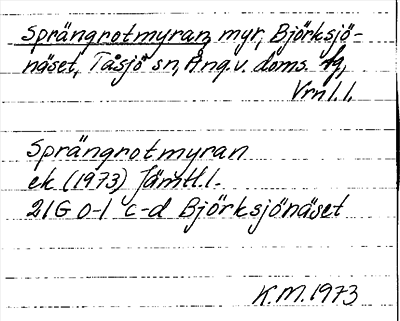 Sprängrotmyran, myr, Björksjö-
näset, Tåsjö sn, Ång.v. doms. fg,
Vrnl.l.
Sprängrotmyran
ek (1973) Jämtl.l.
21G 0-1 c-d Björksjönäset
K.M. 1973